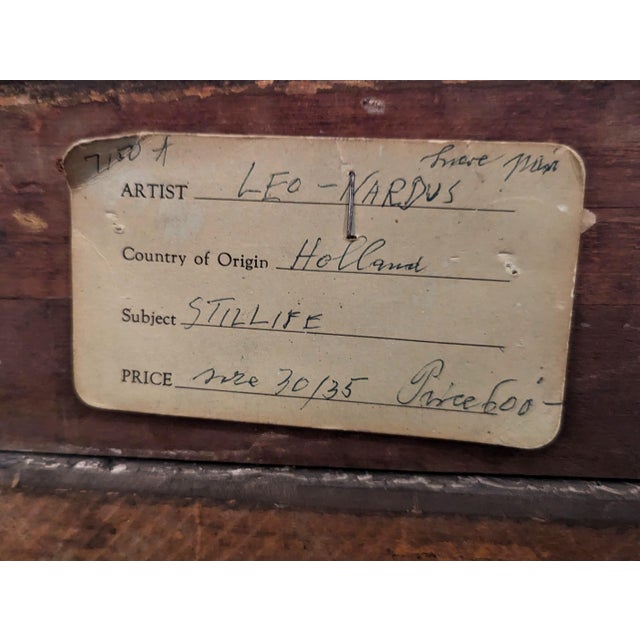 7150 A
ARTIST LEO - NARDUS
Country of Origin Holland
Subject STILLIFE
PRICE size 30/35 Price 600-